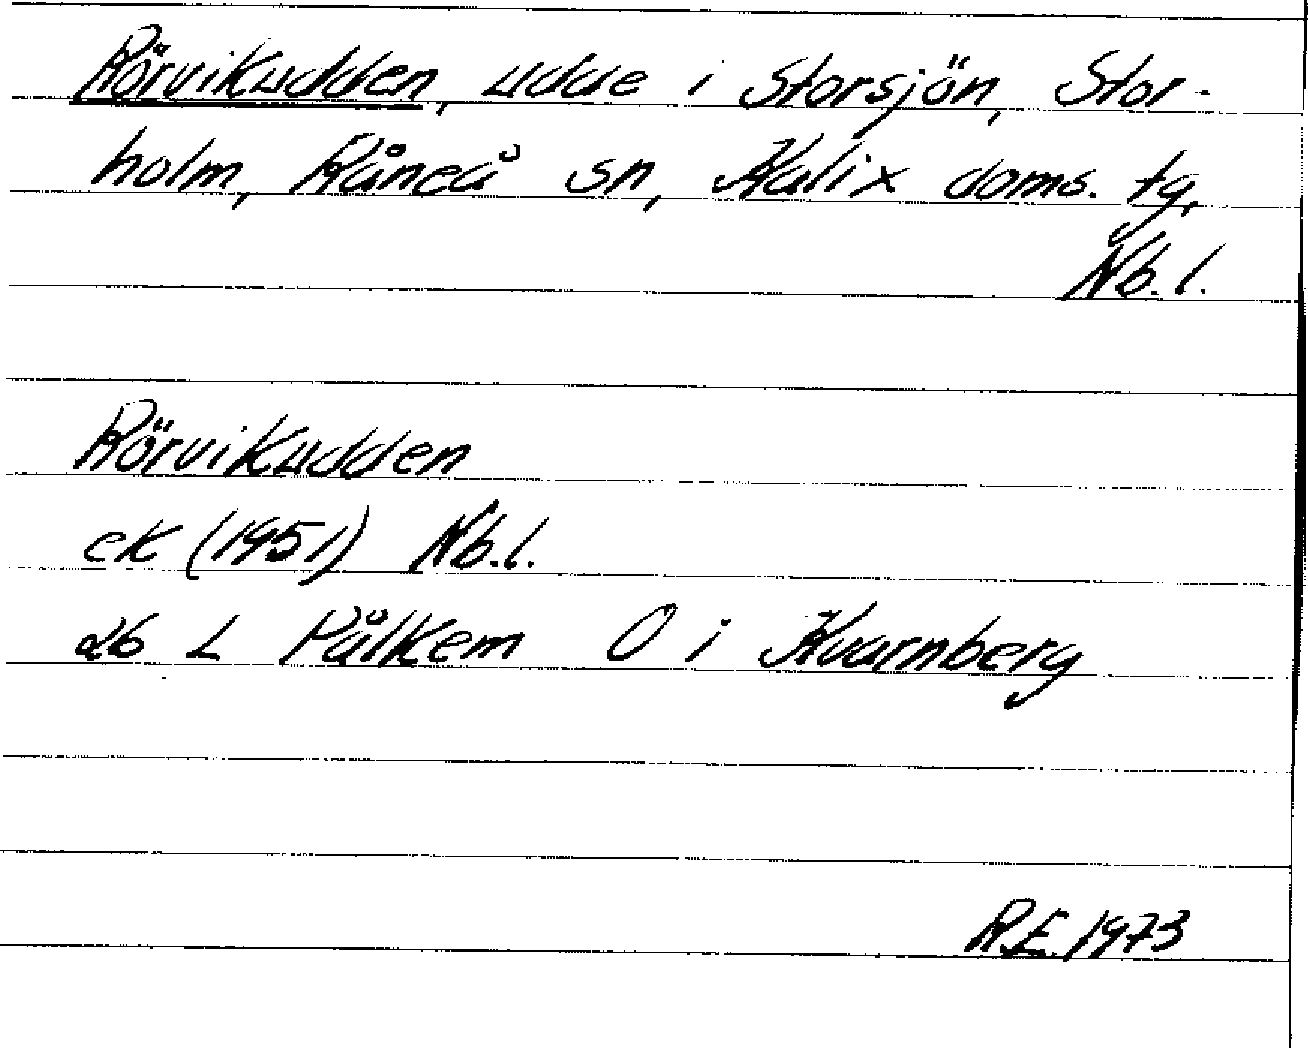 Rörvikudden, udde i Storsjön, Stor-
holm, Råneå sn, Kalix doms. tg,
Nb. l.
Rörvikudden
ek (1951) Nb. l.
26 L Pålkem O i Kvarnberg
R.E. 1973